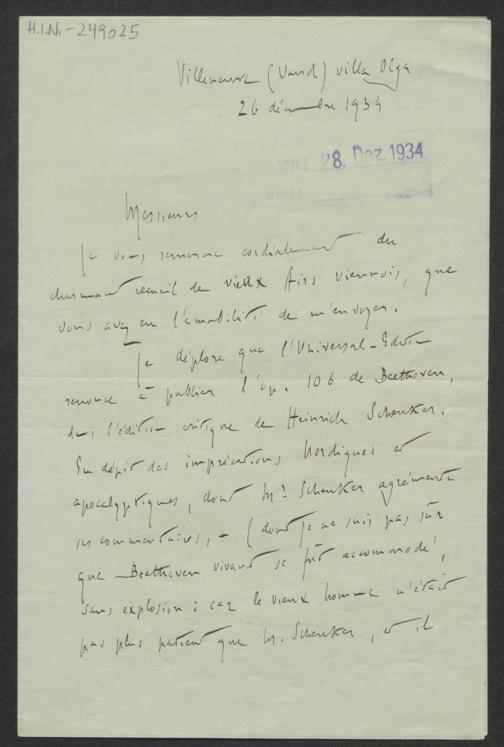 H.I.N.-249025
Villeneuve (Vaud) villa Olga
26 décembre 1934
28. Dez. 1934
Messieurs
Je vous remercie cordialement du
charmant recueil de vieux Airs viennois, que
vous avez eu l'amabilité de m'envoyer.
Je déplore que l'Universal-Edition
renonce à publier l'op. 106 de Beethoven,
dans l'édition critique de Heinrich Schenker.
En dépit des imprécations bordiques et
apocalyptiques, dont Mr Schenker agrémente
ses commentaires, – (dont je ne suis pas sûr
que Beethoven vivant se fût accommodé,
sans explosion : car le vieux homme n'était
pas plus patient que M. Schenker, et il